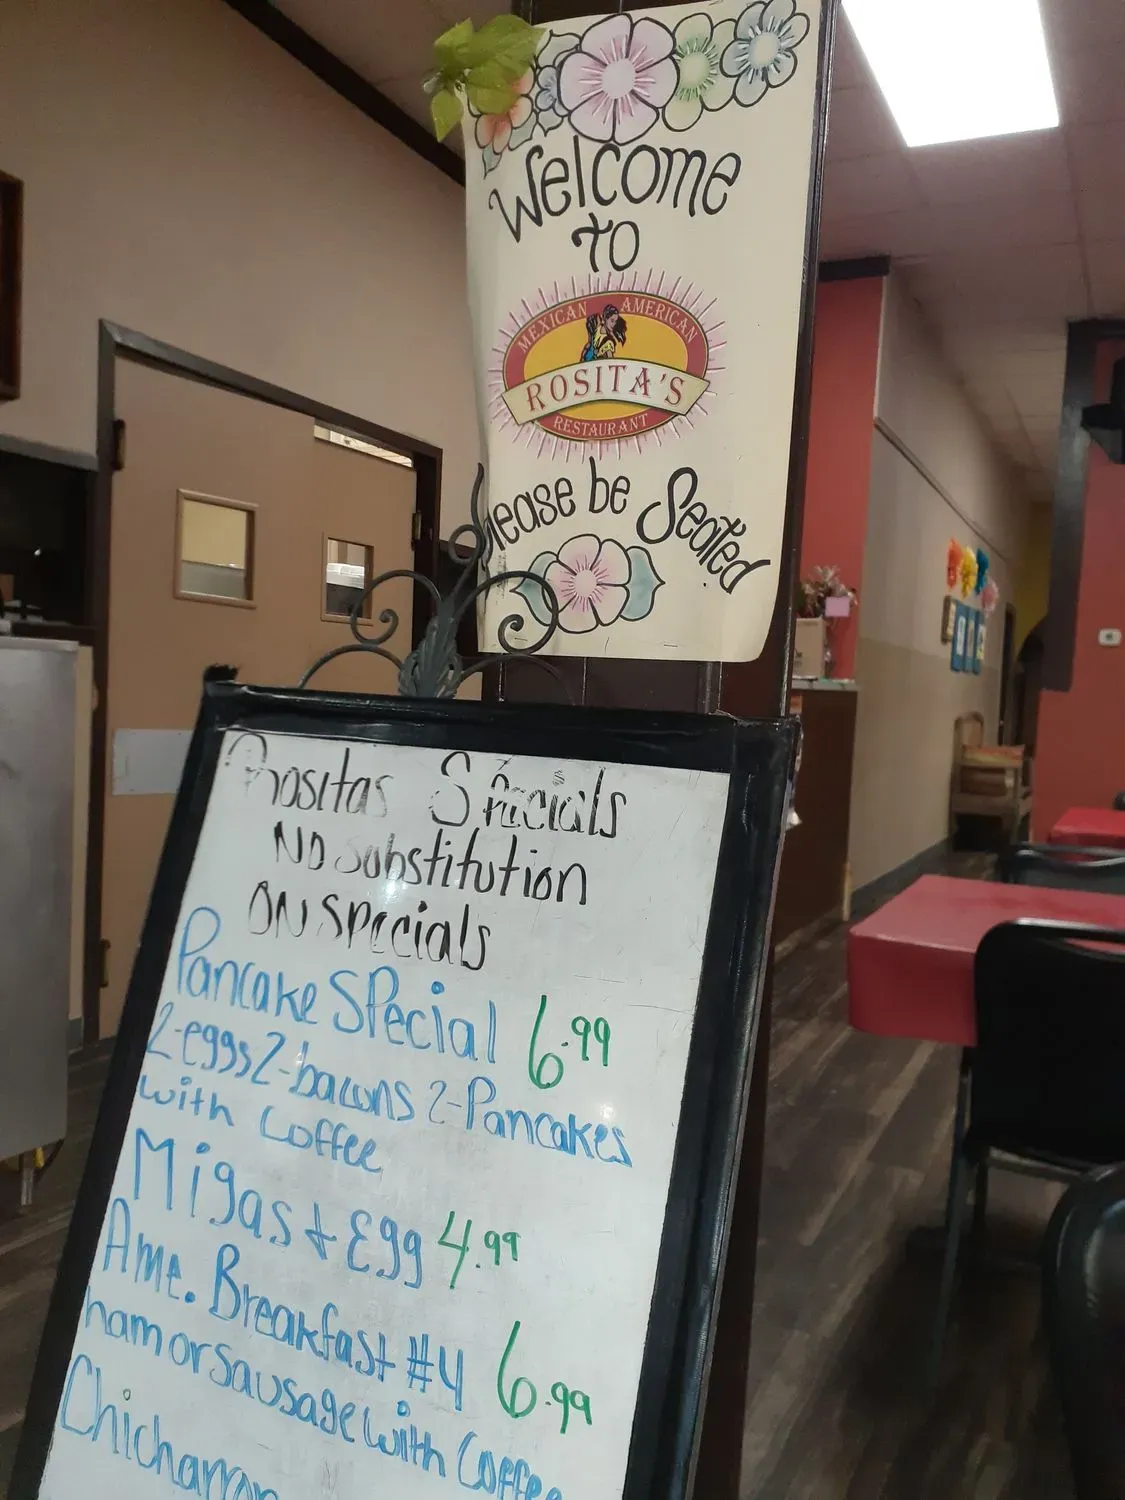 Welcome
to
MEXICAN AMERICAN
ROSITA'S
RESTAURANT
please be Seated
Rositas Specials
NO substitution
ON specials
Pancake Special 6.99
2-eggs 2-bacons 2-Pancakes
with Coffee
Migas + Egg 4.99
Ame. Breakfast #4 6.99
ham or sausage with Coffee
Chicharron